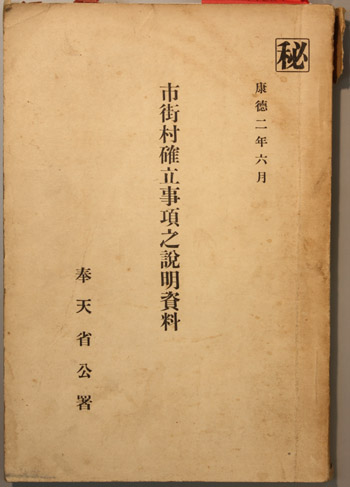 秘
康德二年六月
市街村確立事項之說明資料
奉天省公署